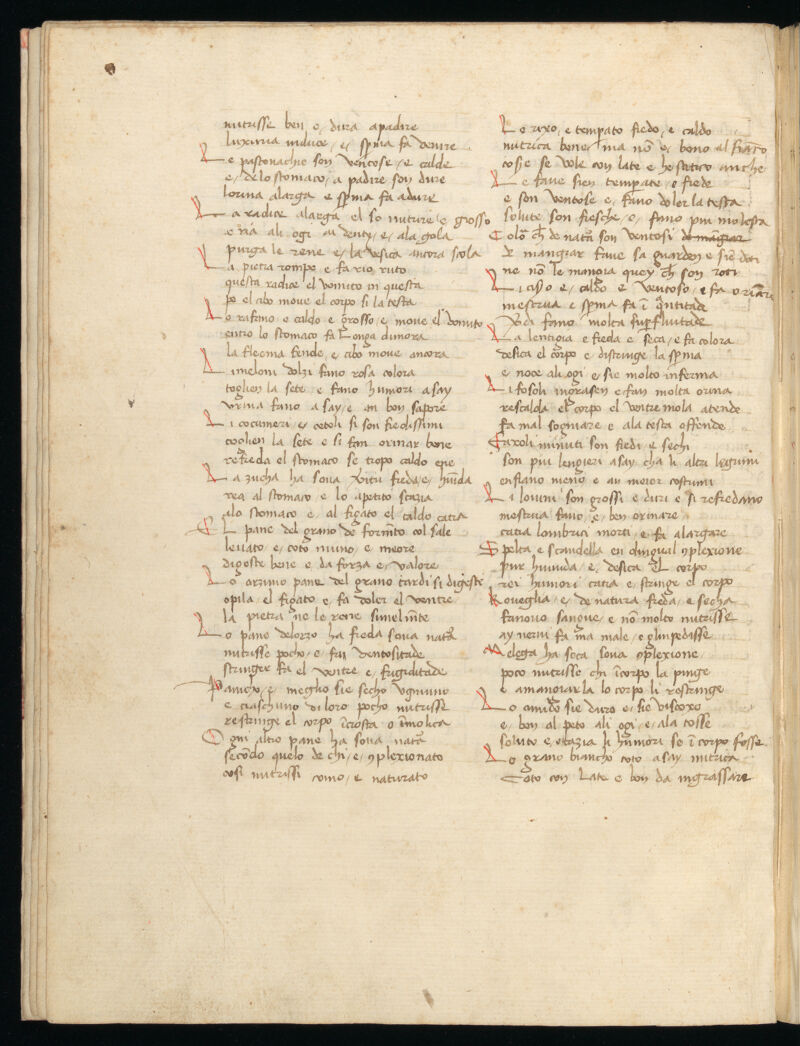 nutrisse ben e, dura apadire
luxuria induce, e, sp̄ma fa venire
Le pastonache son ventose, e calde
e, de lo stomaco, a padire son dure
lorina alarga e sp̄ma fa adure
La radice alarga el so nutrire e grosso
e ma ali ogi ai denti, e, ala gola
purga le rene e, la vesica ancora scola
La pietra rompe e fa rio ruto
questa radice el vomito in questa
po el cibo move el corpo si la testa
Lo rafano e caldo e grosso, e move el vomito
entro lo stomaco fa longa dimora
la flecma fende, e cibo move ancora
Li meloni dolzi fano rosa colora
toglien la sete, e fano humori asay
vrina fano asay, e an bon sapore
Li cocumeri, e cetoli si son fredissimi
toglien la sete e si fan orinar bene
refreda el stomaco se tropo caldo ene
La zucha ha soua vertu freda e, humda
rea al stomaco e lo apetito scazia
alo stomaco e, al figato el caldo catia
El pane del grano de formto col sale
leuato e, coto nuouo, e meore
digoste bene e da forza e, valore
Lo orzimo pane del grano tardi si digeste
opila el figato e, fa doler el ventre
la pietra ne le rene simelmte
Lo pane delorzo ha freda soua nata
nutrisse pocho, e, fa ventositade
stringer fa el ventre e, frigiditade
Panicho, e, meglio sie secho ognuno
e ciaschuno di loro pocho nutrisse
restringe el corpo ī crosta o ī molica
Ogni altro pane ha soua nata
secōdo quelo de chi, e, 9plexionato
cosi nutrissi como, e naturato
Lo rixo, e tempato fredo, e caldo
nutrica bene, ma nō e, bono al fiato
cosie se vole con late e he statico anche
Le faue sien temperate, e frede
e son ventose e, fano doler la testa
solute son fresche, e, fano piu molesta
Coloȓ ch̄ de natȓa son ventosi de mangiar
de mangiar faue sa guarden e sie doi
ne nō le mangia quey ch̄ son roti
Li ciso e, caldo e ventoso, e fa orinare
mestrua e sperma fa ī quntitade
Vodi fano molta superfluitade
La lenticia e freda e seca, e fa colora
desica el corpo e distringe la sperma
e noce ali ogi e sie molto inferma
Li fasoli ingrasen e fan molta orina
rescalda el corpo el ventre mola atende
fa mal sogniare e ala testa offende
Faxoli minuti son fredi e sechi
son piu lengieri asay cha li altri legumi
enfiano meno e an meior costumi
Li louini son grossi e duri e si refredano
mestrua fano, e, ben orinare
catia lombrici morti e fa alargare
Spelta e scandella en dingual 9plexione
pur humida, e, desica el corpo
rei humori catia e, stringe el corpo
Roueglia e, de natura freda, e secha
fanouo sangue, e nō molto nutrisse
ay nerui fa ma male, e 9lmpedisse
Melega ha seca soua 9plexione
poco nutrisse chi ī corpo la pinge
e amaniar la lo corpo li restringe
Lo amido sie duro e, sie viscoxo
e, bon al peto ali ogi e, ala tosse
soluto e, stazia li humori se ī corpo fosse
Lo grano biancho coto asay nutrica
Coto con Late e bon da ingrassare